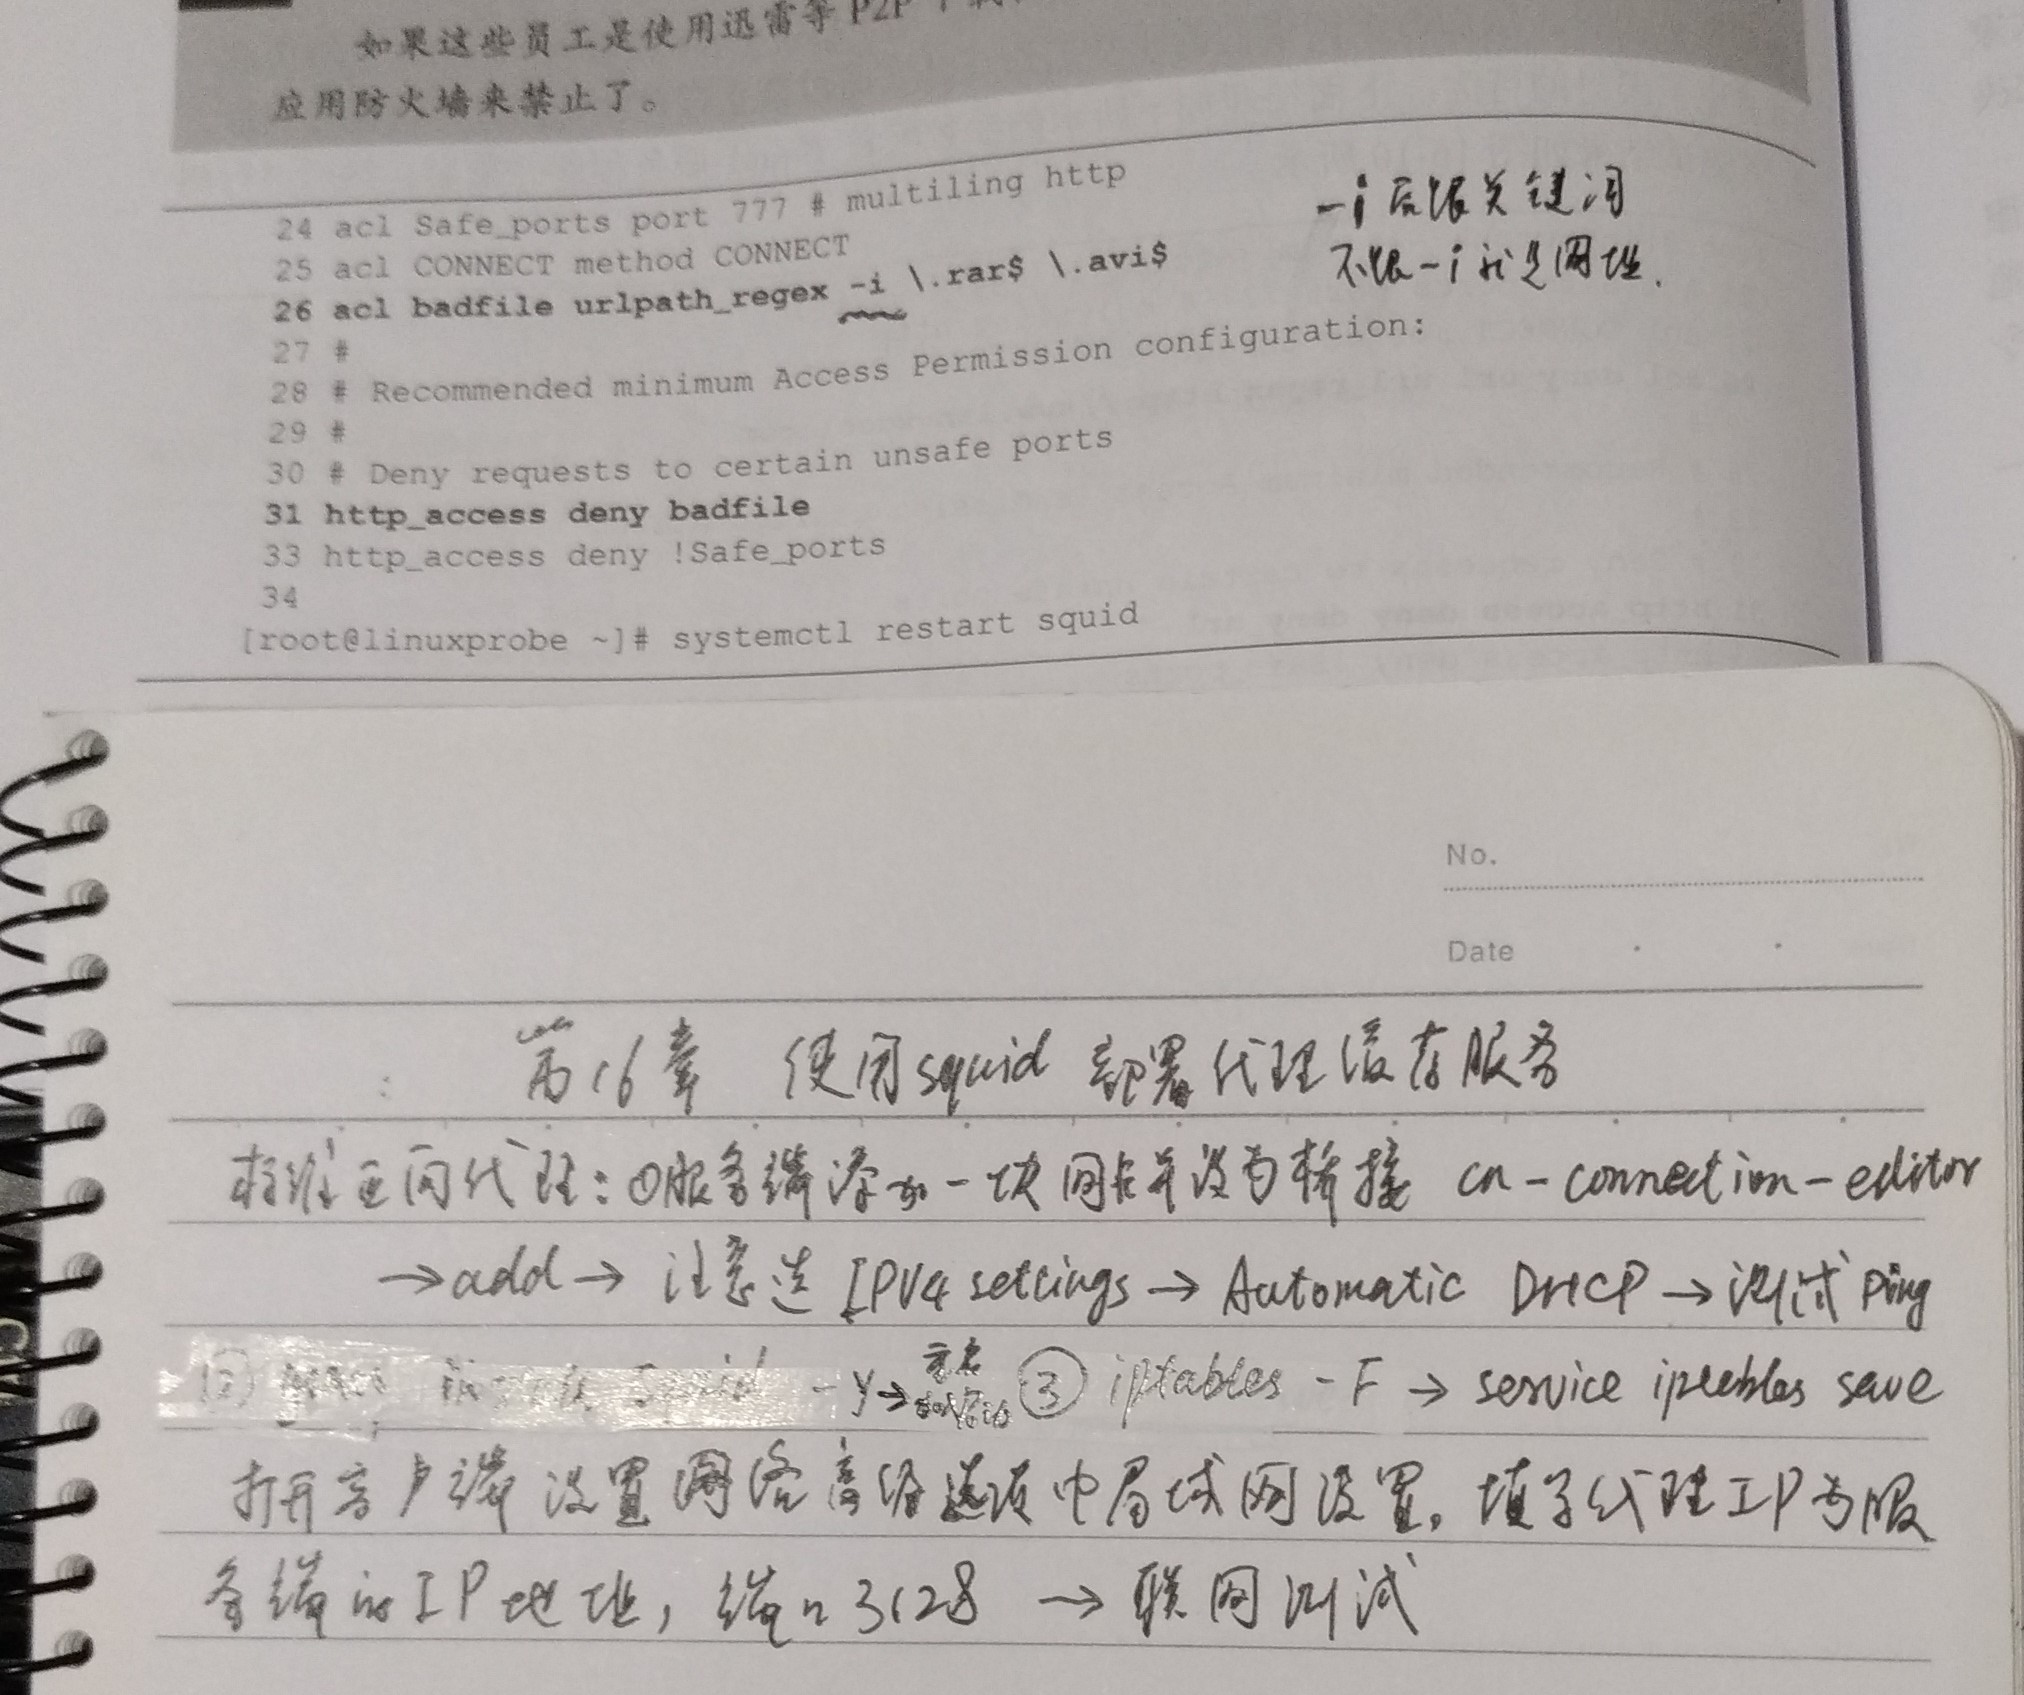 如果这些员工是使用迅雷等 P2P 下载
应用防火墙来禁止了。
24 acl Safe_ports port 777 # multiling http
25 acl CONNECT method CONNECT
26 acl badfile urlpath_regex -i \.rar$ \.avi$
27 #
28 # Recommended minimum Access Permission configuration:
29 #
30 # Deny requests to certain unsafe ports
31 http_access deny badfile
33 http_access deny !Safe_ports
34
[root@linuxprobe ~]# systemctl restart squid
-i后跟关键词
不跟-i就是网址.
No.
Date
第16章 使用squid 部署代理缓存服务
标准正向代理:①服务端添加一块网卡并设为桥接 cn-connection-editor
→add→ 注意选 IPV4 settings → Automatic DHCP → 测试 Ping
② Squid -y→ ③ iptables -F → service iptables save
打开客户端 设置网络高级选项中局域网设置,填写代理IP为服
务端的IP地址,端口3128 → 联网测试